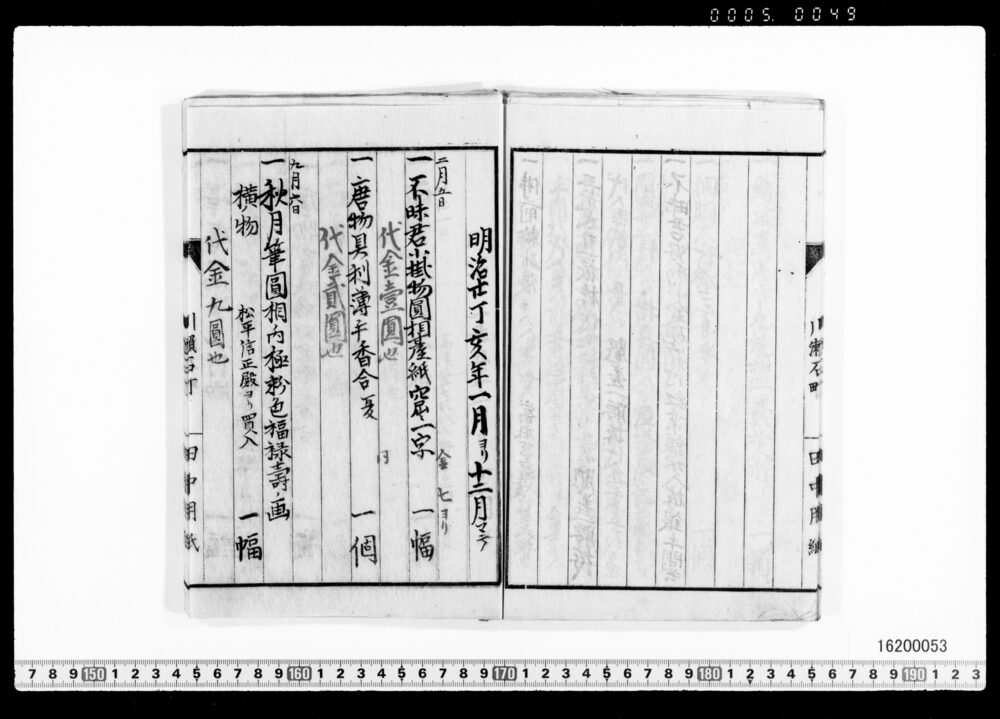 0005. 0049
明治廿丁亥年一月ヨリ十二月マテ
二月五日
金七ヨリ
一不昧君小掛物圓相産紙窟一字 一幅
代金壹圓也
一唐物具利薄手香合 一個
代金貳圓也
九月六日
一秋月筆圓相内極彩色福禄壽ノ画
横物 松平信正殿ヨリ買入 一幅
代金九圓也
川瀬石町 田中用紙
川瀬石町 田中用紙
16200053
7 8 9 150 1 2 3 4 5 6 7 8 9 160 1 2 3 4 5 6 7 8 9 170 1 2 3 4 5 6 7 8 9 180 1 2 3 4 5 6 7 8 9 190 1 2 3